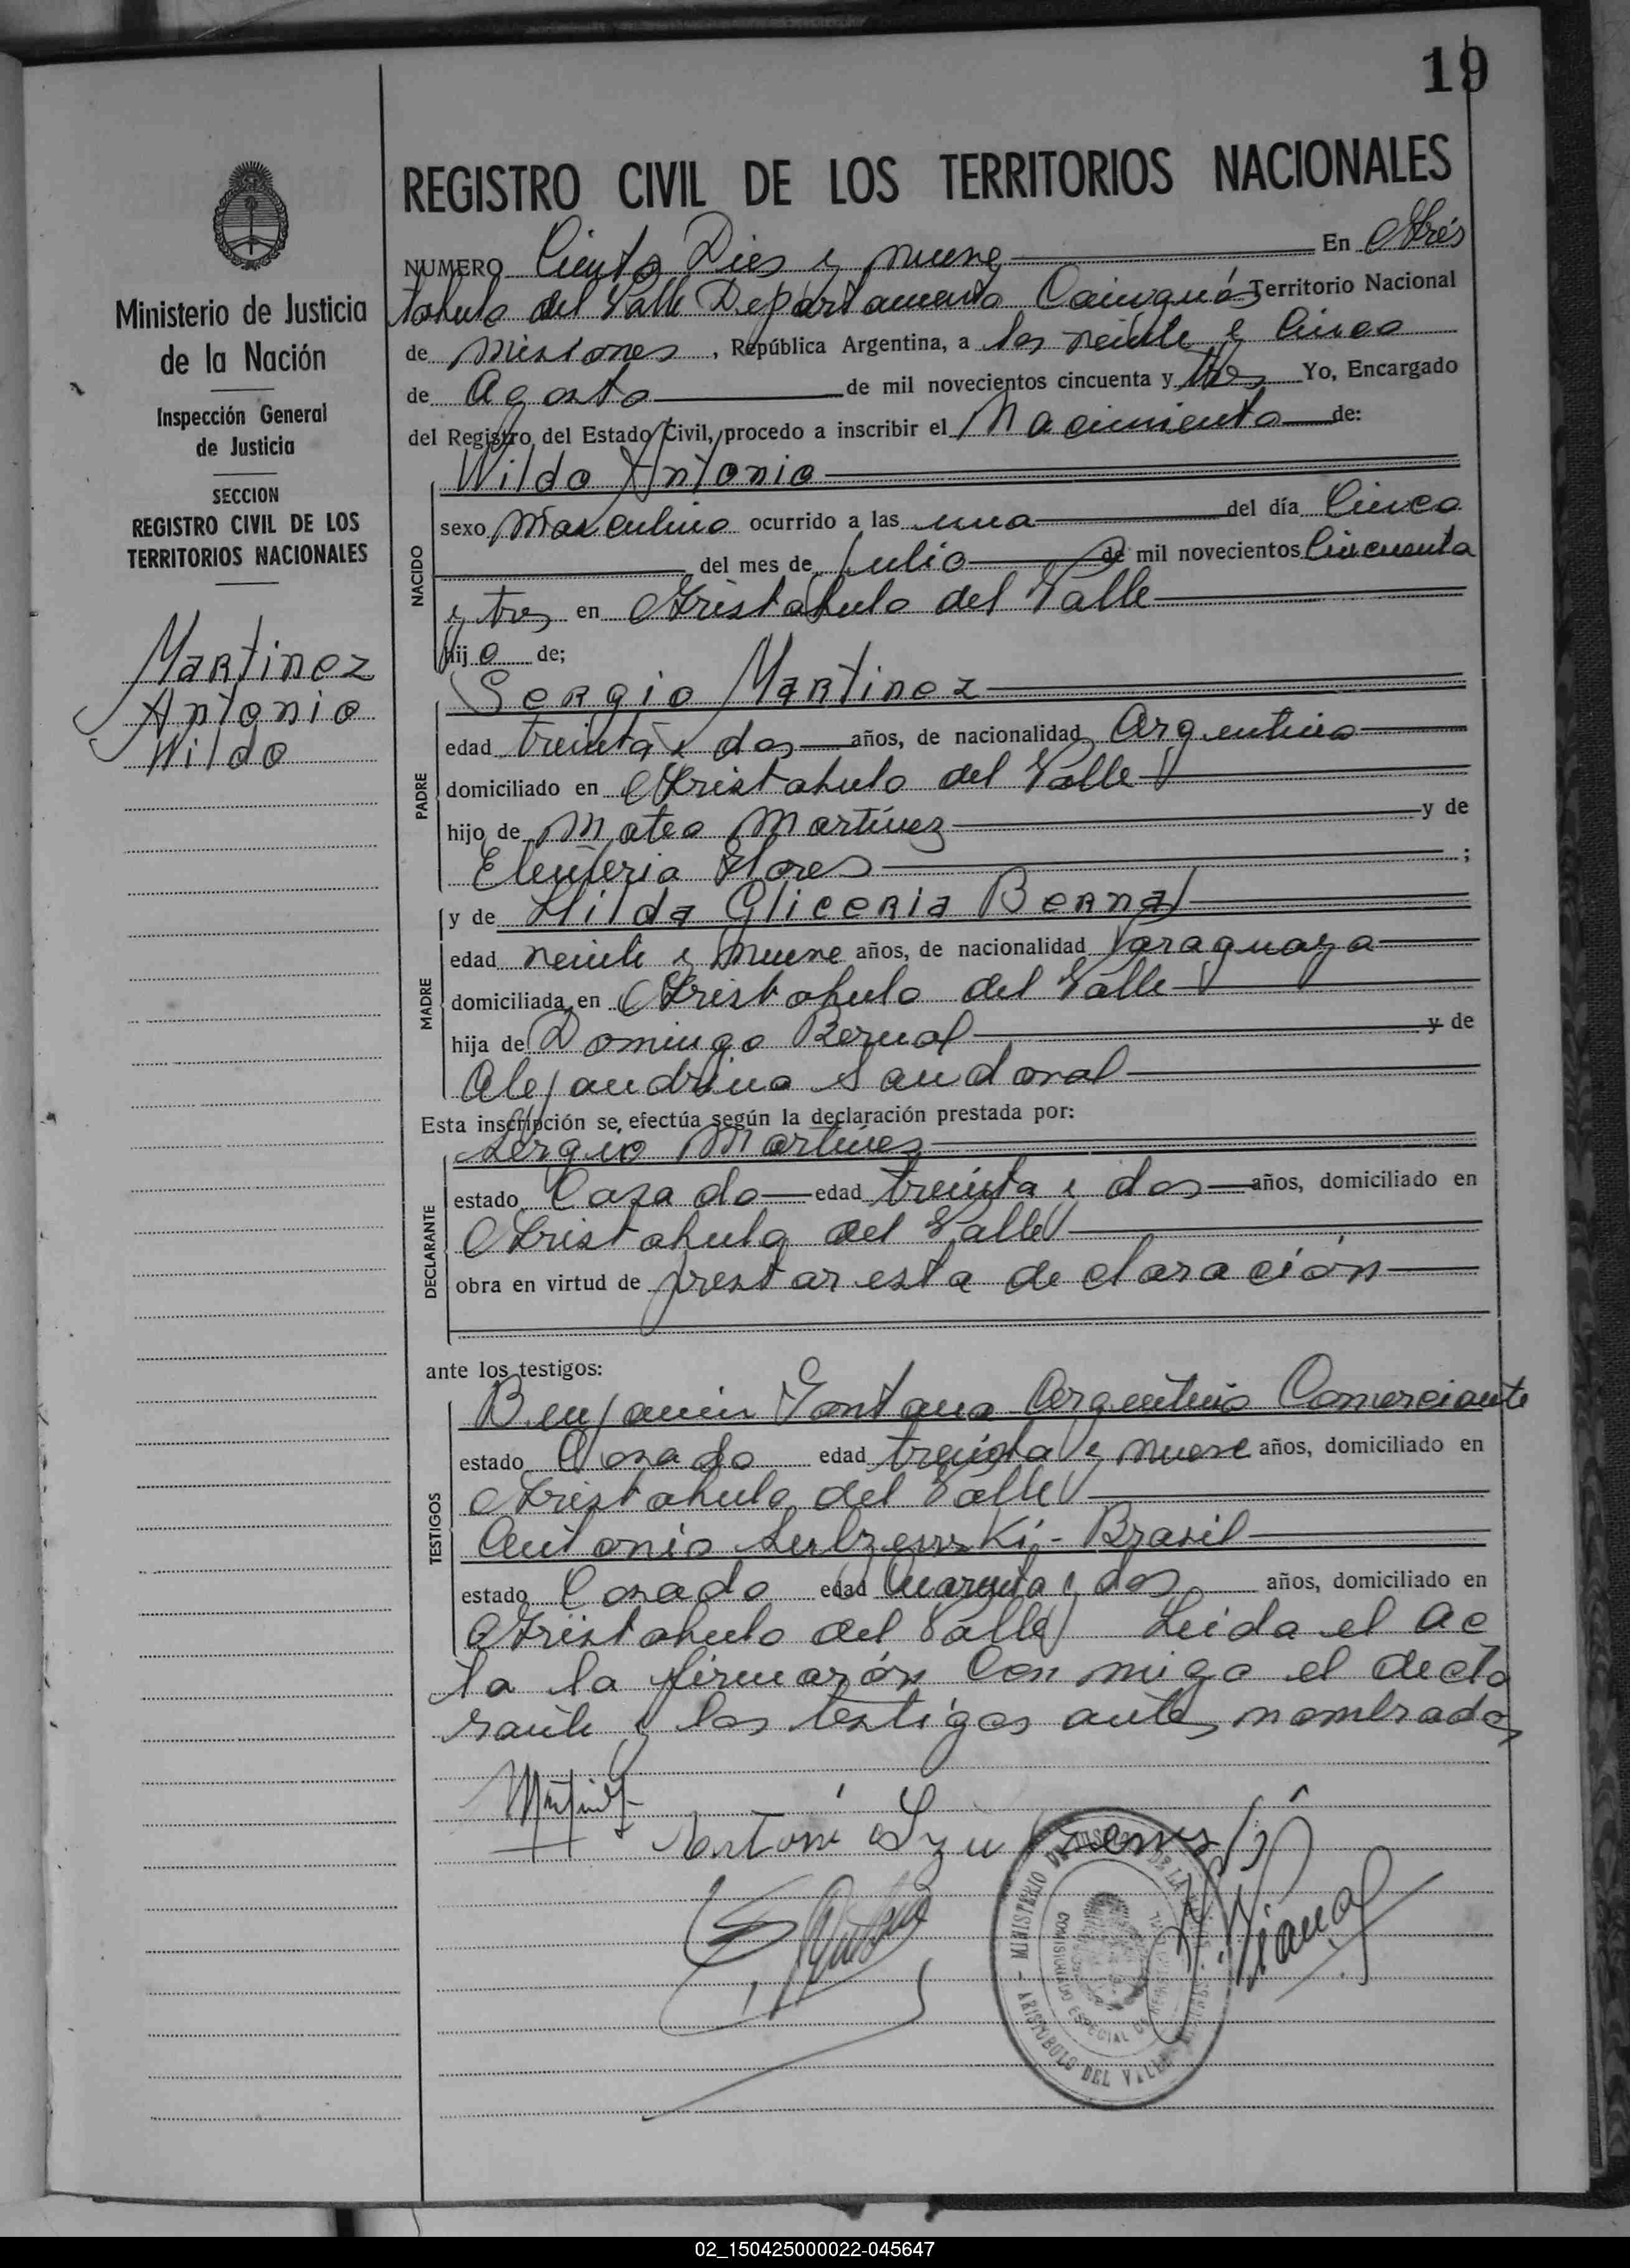 19
REGISTRO CIVIL DE LOS TERRITORIOS NACIONALES
NUMERO Ciento Dies y nueve En Aris
tobulo del Valle Departamento Cainguás Territorio Nacional
de Misiones, República Argentina, a los veinte y Cinco
de Agosto de mil novecientos cincuenta y tres Yo, Encargado
del Registro del Estado Civil, procedo a inscribir el Nacimiento de:
Ministerio de Justicia
de la Nación
Inspección General
de Justicia
SECCION
REGISTRO CIVIL DE LOS
TERRITORIOS NACIONALES
Martinez
Antonio
Wildo
NACIDO
Wildo Antonio
sexo Masculino ocurrido a las una del día Cinco
del mes de Julio de mil novecientos Cincuenta
y tres en Aristobulo del Valle
hijo de;
PADRE
Sergio Martinez
edad treinta y dos años, de nacionalidad Argentino
domiciliado en Aristobulo del Valle
hijo de Mateo Martínez y de
Eleuteria Flores ;
MADRE
y de Hilda Gliceria Bernal
edad veinte y nueve años, de nacionalidad Paraguaya
domiciliada en Aristobulo del Valle
hija de Domingo Bernal y de
Alejandrina Sandoval
Esta inscripción se efectúa según la declaración prestada por:
DECLARANTE
Sergio Martines
estado Casado edad treinta y dos años, domiciliado en
Aristobulo del Valle
obra en virtud de prestar esta declaración
ante los testigos:
TESTIGOS
Benjamin Fontana Argentino Comerciante
estado Casado edad treinta y nueve años, domiciliado en
Aristobulo del Valle
Antonio - Brasil
estado Casado edad Cuarenta y dos años, domiciliado en
Aristobulo del Valle Leida el Ac
ta la firmarón Con migo el decla
rante y los testigos antes nombrados
MINISTERIO DE JUSTICIA DE LA
COMISIONADO ESPECIAL DE
ARISTOBULO DEL VALLE
02_150425000022-045647